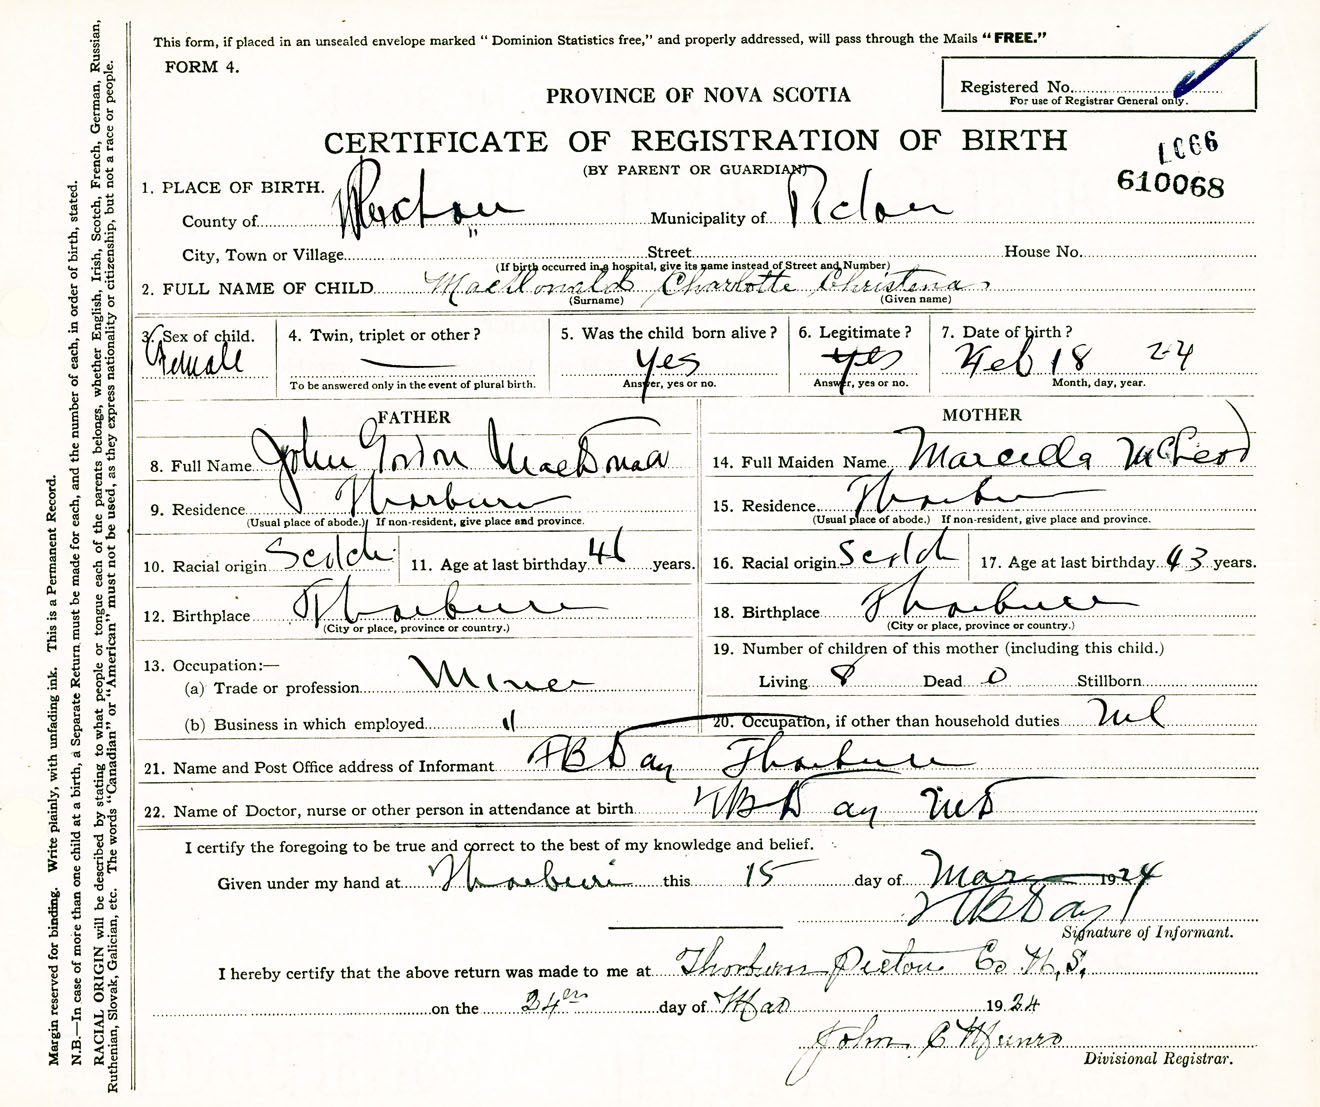 This form, if placed in an unsealed envelope marked " Dominion Statistics free," and properly addressed, will pass through the Mails "FREE."
FORM 4.
Registered No.
For use of Registrar General only.
PROVINCE OF NOVA SCOTIA
CERTIFICATE OF REGISTRATION OF BIRTH
(BY PARENT OR GUARDIAN)
610068
1. PLACE OF BIRTH.
County of Municipality of Pictou
City, Town or Village " Street House No.
(If birth occurred in a hospital, give its name instead of Street and Number)
2. FULL NAME OF CHILD MacDonald Charlotte Christena
(Surname) (Given name)
3. Sex of child. Female
4. Twin, triplet or other? —
To be answered only in the event of plural birth.
5. Was the child born alive? Yes
Answer, yes or no.
6. Legitimate? Yes
Answer, yes or no.
7. Date of birth? Feb 18 24
Month, day, year.
FATHER
8. Full Name John Gordon MacDonald
9. Residence Thorburn
(Usual place of abode.) If non-resident, give place and province.
10. Racial origin Scotch 11. Age at last birthday 46 years.
12. Birthplace Thorburn
(City or place, province or country.)
13. Occupation:—
(a) Trade or profession Miner
(b) Business in which employed "
MOTHER
14. Full Maiden Name Marcella McLeod
15. Residence Thorburn
(Usual place of abode.) If non-resident, give place and province.
16. Racial origin Scotch 17. Age at last birthday 43 years.
18. Birthplace Thorburn
(City or place, province or country.)
19. Number of children of this mother (including this child.)
Living 8 Dead 0 Stillborn
20. Occupation, if other than household duties Nil
21. Name and Post Office address of Informant Day Thorburn
22. Name of Doctor, nurse or other person in attendance at birth Day MD
I certify the foregoing to be true and correct to the best of my knowledge and belief.
Given under my hand at Thorburn this 15 day of Mar 1924
Day
Signature of Informant.
I hereby certify that the above return was made to me at Thorburn Pictou Co N.S.
on the 24 day of Mar 1924
John C Munro
Divisional Registrar.
Margin reserved for binding. Write plainly, with unfading ink. This is a Permanent Record.
N.B.—In case of more than one child at a birth, a Separate Return must be made for each, and the number of each, in order of birth, stated.
RACIAL ORIGIN will be described by stating to what people or tongue each of the parents belongs, whether English, Irish, Scotch, French, German, Russian,
Ruthenian, Slovak, Galician, etc. The words "Canadian" or "American" must not be used, as they express nationality or citizenship, but not a race or people.